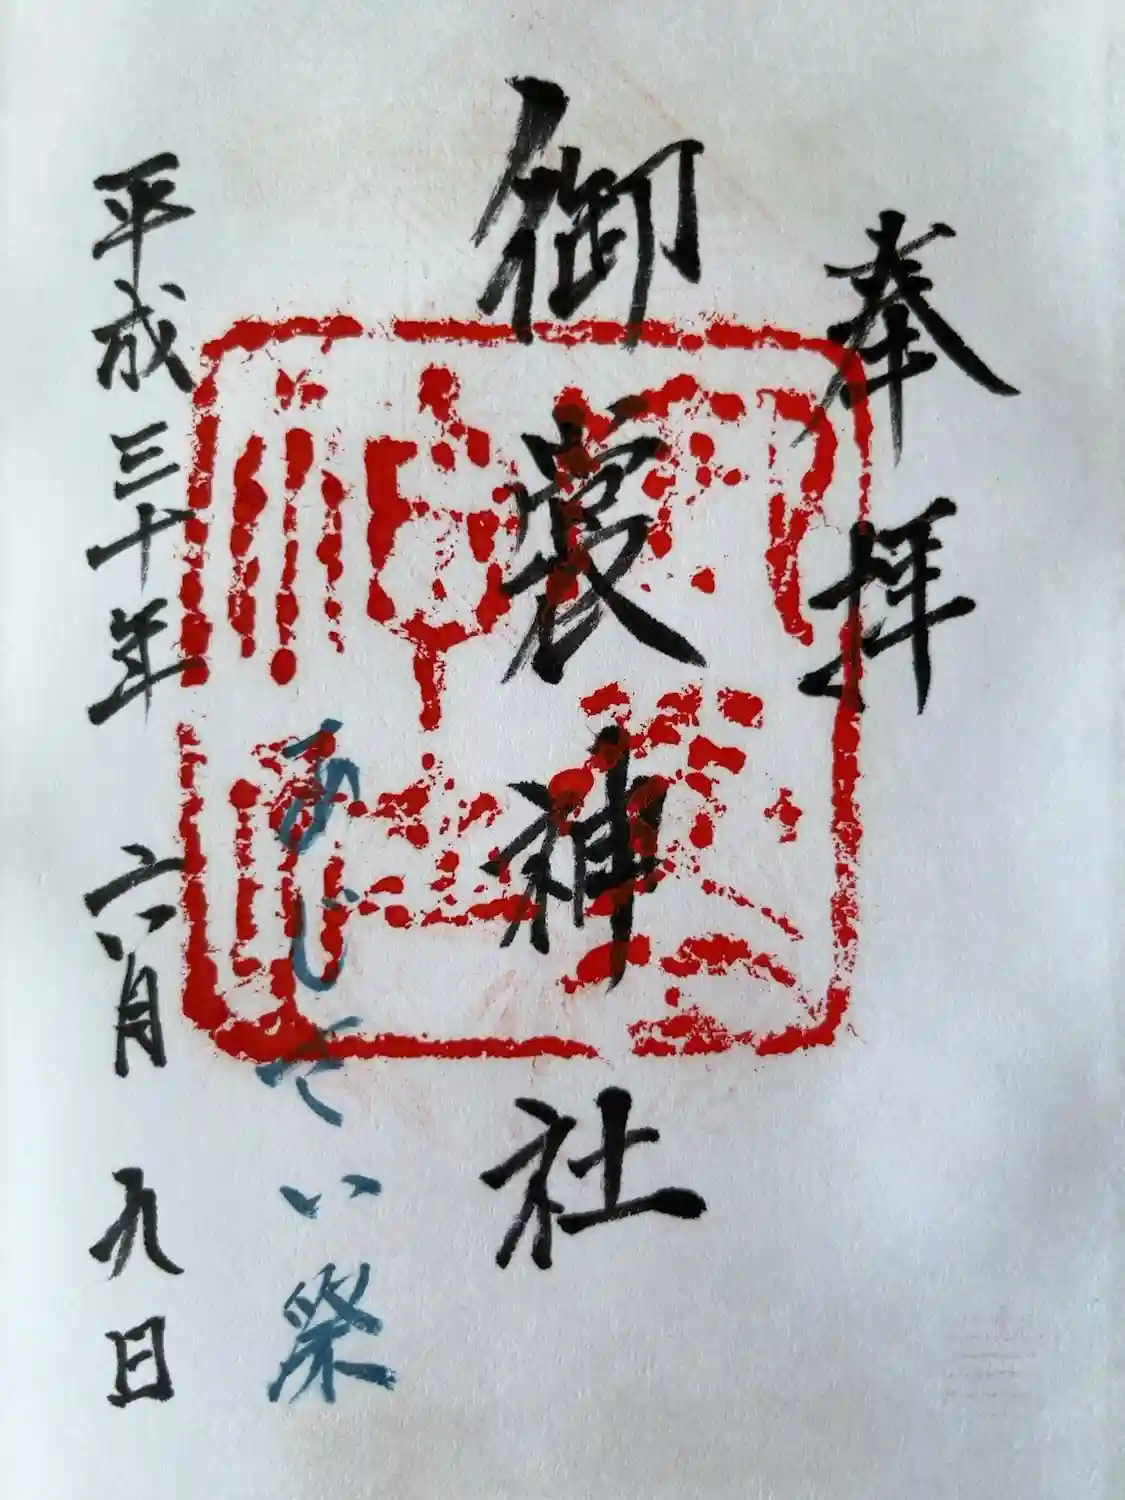 奉拝
御裳神社
あじさい祭
平成三十年六月九日